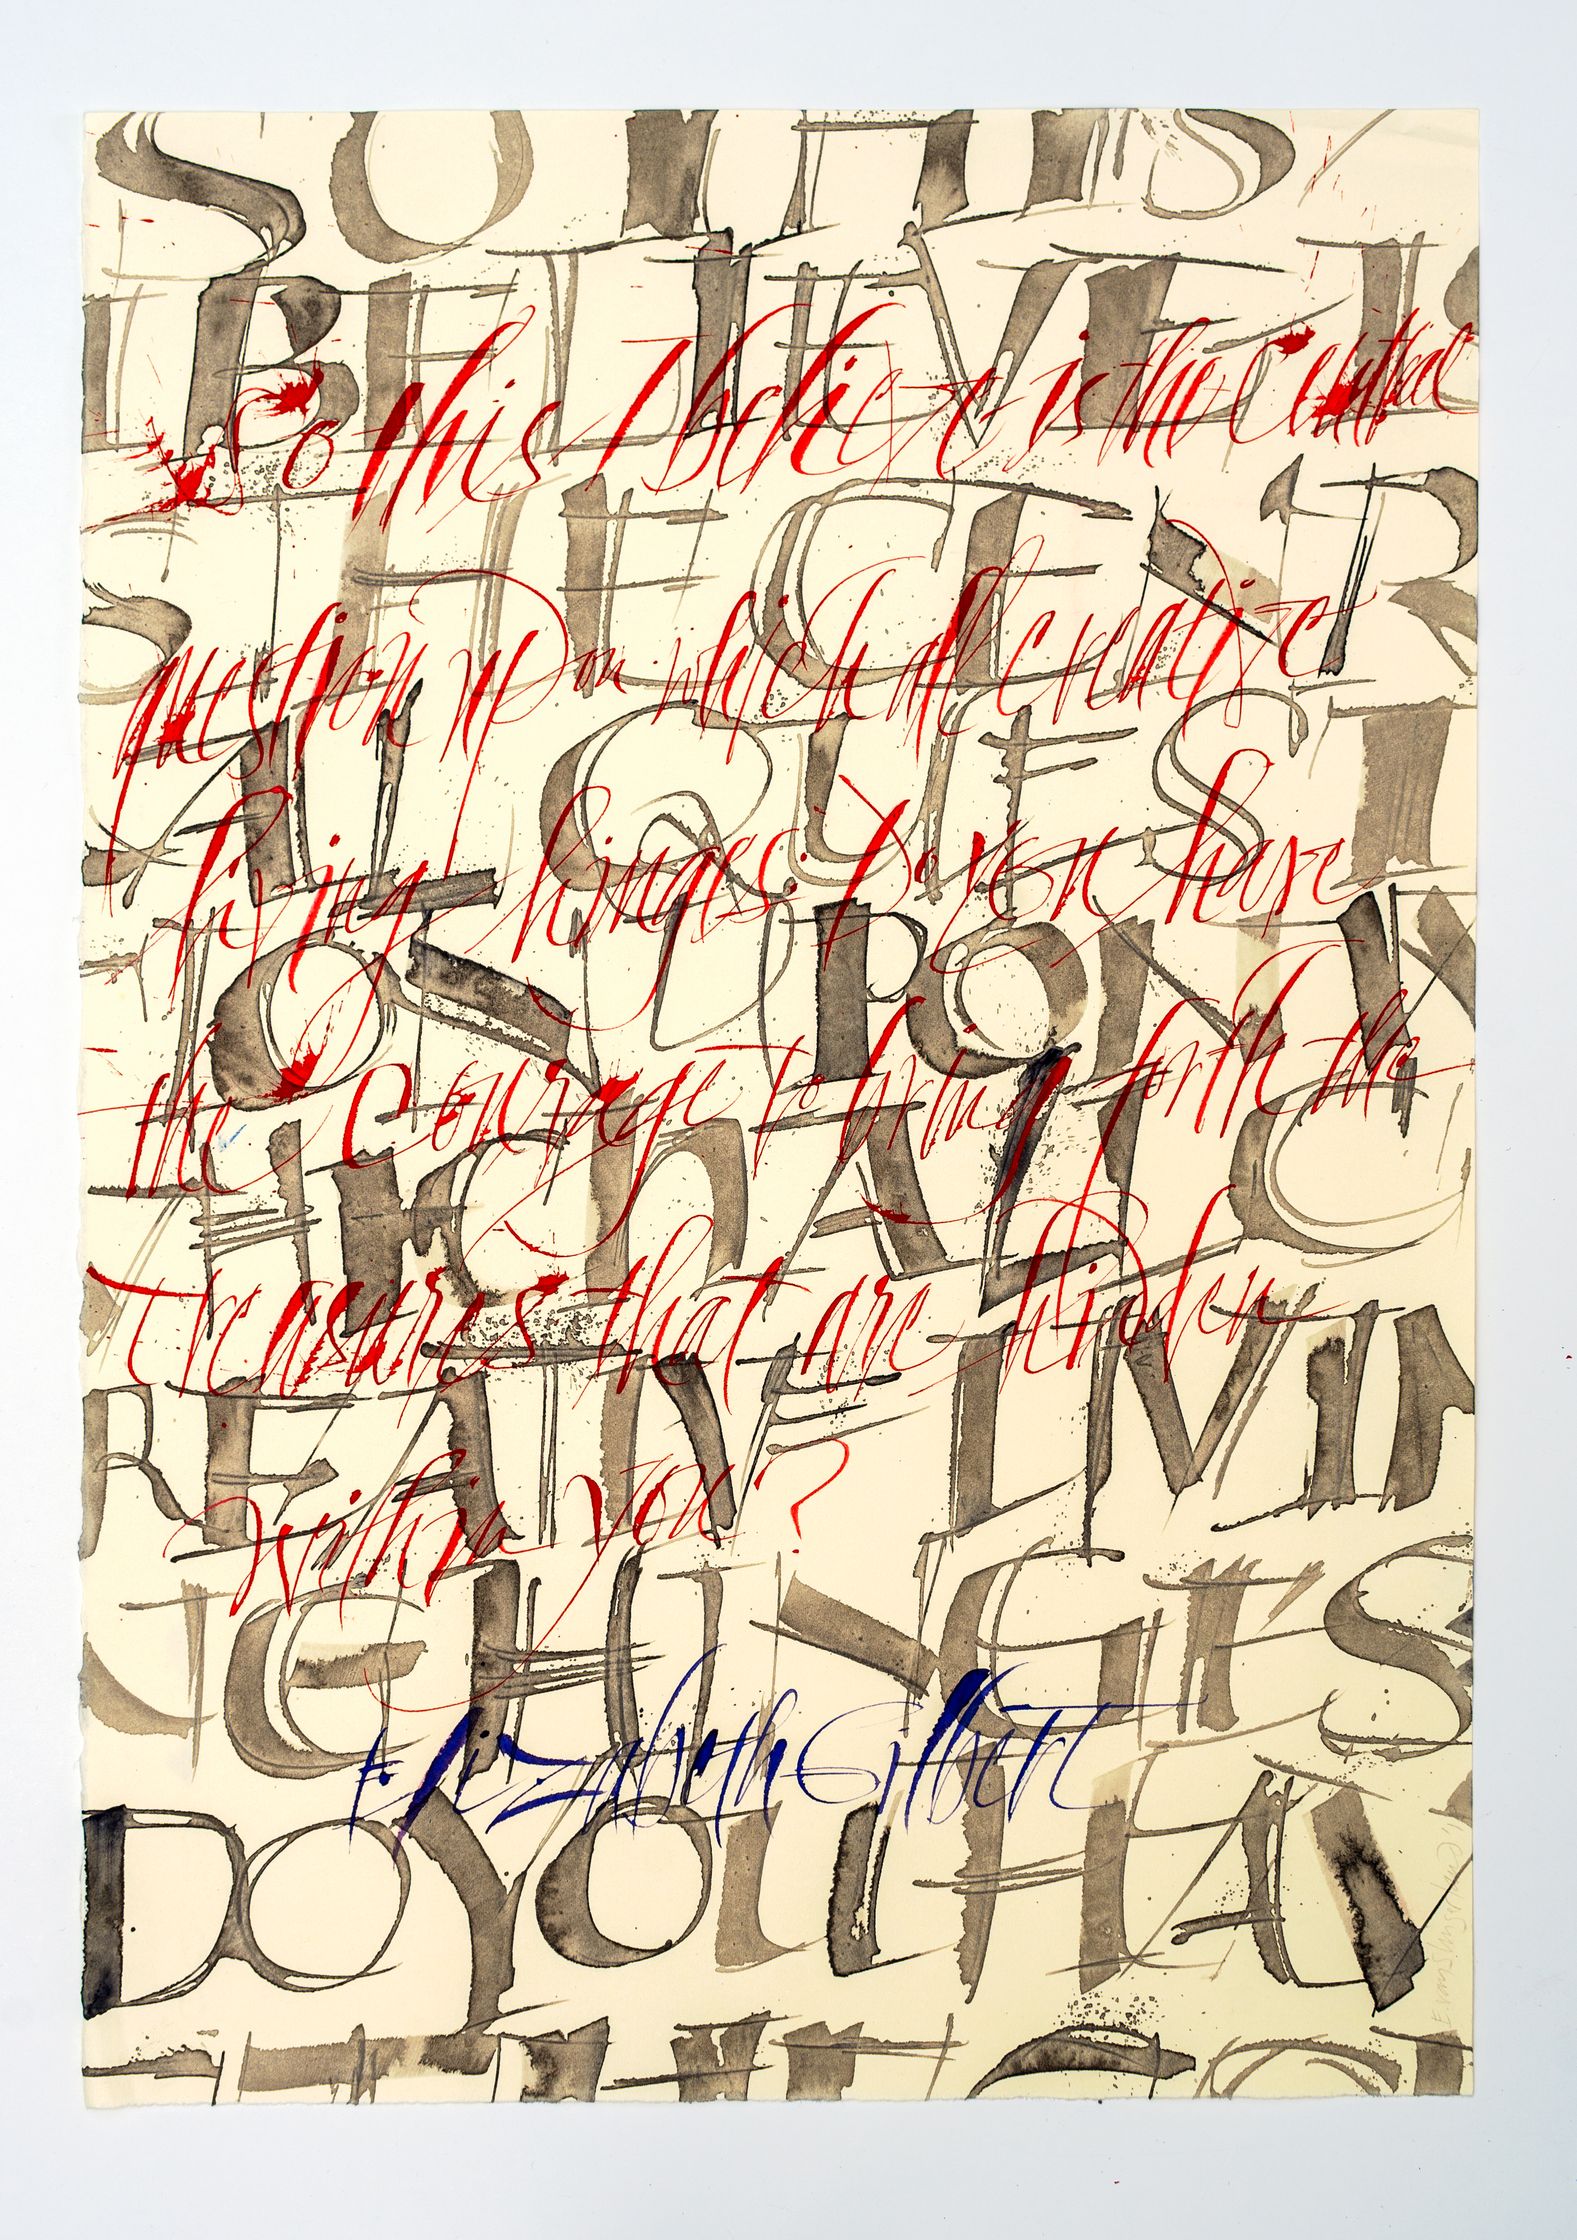 SO THIS
I BELIEVE IS
S THE CENTR
AL QUEST
ION UPON W
HICH ALL C
REATIVE LIVIN
NG HINGES
DO YOU HAV
E THE CO
So this I believe is the central
question upon which all creative
living hinges: Do you have
the courage to bring forth the
treasures that are hidden
within you?
Elizabeth Gilbert